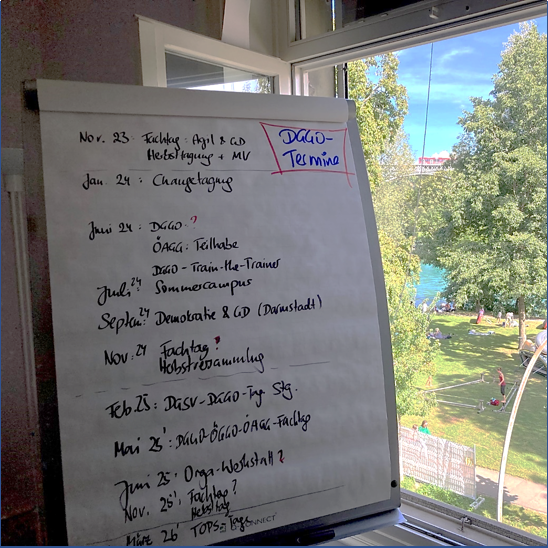 DGGO-
Termine
Nov. 23: Fachtag: Agil & GD
Herbsttagung + MV
Jan. 24: Changetagung
Juni 24: DGGO ?
ÖAGG: Teilhabe
DGGO-Train-the-Trainer
Juli 24: Sommercampus
Septem. 24: Demokratie & GD (Darmstadt)
Nov. 24 Fachtag ?
Herbstversammlung
Feb. 25: DGSV-DGGO-Tag Stg.
Mai 25': DGGO-ÖGGO-ÖAGG-Fachtag
Juni 25: Orga-Werkstatt ?
Nov. 25': Fachtag ?
März 26' TOPS-Tage